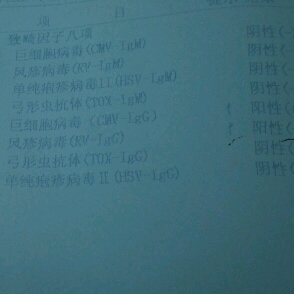 项 目
致畸因子八项
巨细胞病毒(CMV-IgM) 阴性(-
风疹病毒(RV-IgM) 阴性(-
单纯疱疹病毒II(HSV-IgM) 阴性(-
弓形虫抗体(TOX-IgM) 阴性(-
巨细胞病毒(CMV-IgG) ↑ 阳性(
风疹病毒(RV-IgG) ↑ 阳性(
弓形虫抗体(TOX-IgG) 阴性(
单纯疱疹病毒II(HSV-IgG) 阴性(